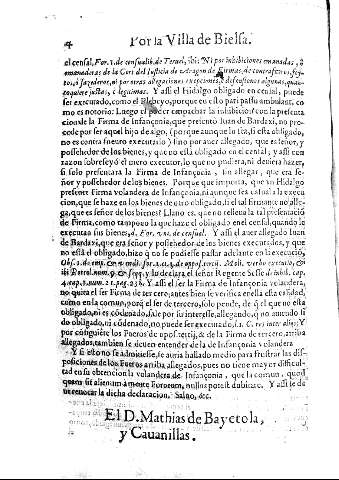 4 Por la Villa de Bielsa.
el censal, For. 1. de censualib. de Teruel, ibi: Ni por inhibiciones emanadas, ò
emanaderas de la Cort del Iusticia de Aragon de Firmas, de contrafuero,
ò fazederos, ni por otras allegaciones excepciones, ò defensiones algunas, qua-
lesquiere justas, ò legitimas. Y assi el Hidalgo obligado en censal, puede
ser executado, como el Plebeyo, porque en esto pari passu ambulant, co-
mo es notorio: Luego el poder empachar la inhibicion, con la presenta
cion de la Firma de Infançonia, que pretento Iuan de Bardaxi, no pro-
cede por ser aquel hijo de algo, (porque aunque lo sea, si està obligado,
no es contra fuero executarlo) sino por auer allegado, que es señor, y
possehedor de los bienes, y que no està obligado en el censal; y assi con
razon sobreseyò el mero executor, lo que no pudiera, ni deuiera hazer,
si solo presentàra la Firma de Infançonia, sin allegar, que era se-
ñor y possehedor de los bienes. Porque que importa, que vn Hidalgo
presente Firma volandera de Infançonia, ni aunque sea casal a la execu
cion, que se haze en los bienes de otro obligado, si el tal firmante no alle-
ga, que es señor de los bienes? Llano es, que no releua la tal presentaciõ
de Firma, como tampoco la que haze el obligado en el censal, quando le
executan sus bienes, d. For. vnic. de censual. Y assi el auer allegado Iuan
de Bardaxi, que era señor y possehedor de los bienes executados, y que
no està obligado, hizo q̃ no se pudiesse passar adelante en la execuciõ,
y lo declara, el señor Regente Sesse de inhib. cap.
4. §. 3. num. 21. pag. 236. Y assi el ser la Firma de Infançonia volandera,
no quita el ser Firma de tercero; antes bien se verifica en ella esta calidad,
como en la comun, porq̃ el ser de tercero, solo pende, de q̃ el que no està
obligado, ni es cõdenado, sale por su interesse, allegando, q̃ no auiendo si
do obligado, ni cõdenado, no puede ser executado, l. 1. C. res inter alios; Y
por consiguiente los Fueros de apposititijs, & de Firma de tercero, arriba
allegados, tambien se deuen entender de la de Infançonia volandera
Y si esto no se admitiesse, se auria hallado medio para frustrar las dis-
posiciones de los Fueros arriba allegados, pues no tiene mayor dificul-
tad en su obtencion la volandera de Infançonia, que la comun, quod
quam sit alienum à mente Fororum, nullus potest dubitare. Y assi se de
ue reuocar la dicha declaracion. Saluo, &c.
El D. Mathias de Bayetola,
y Cauanillas.